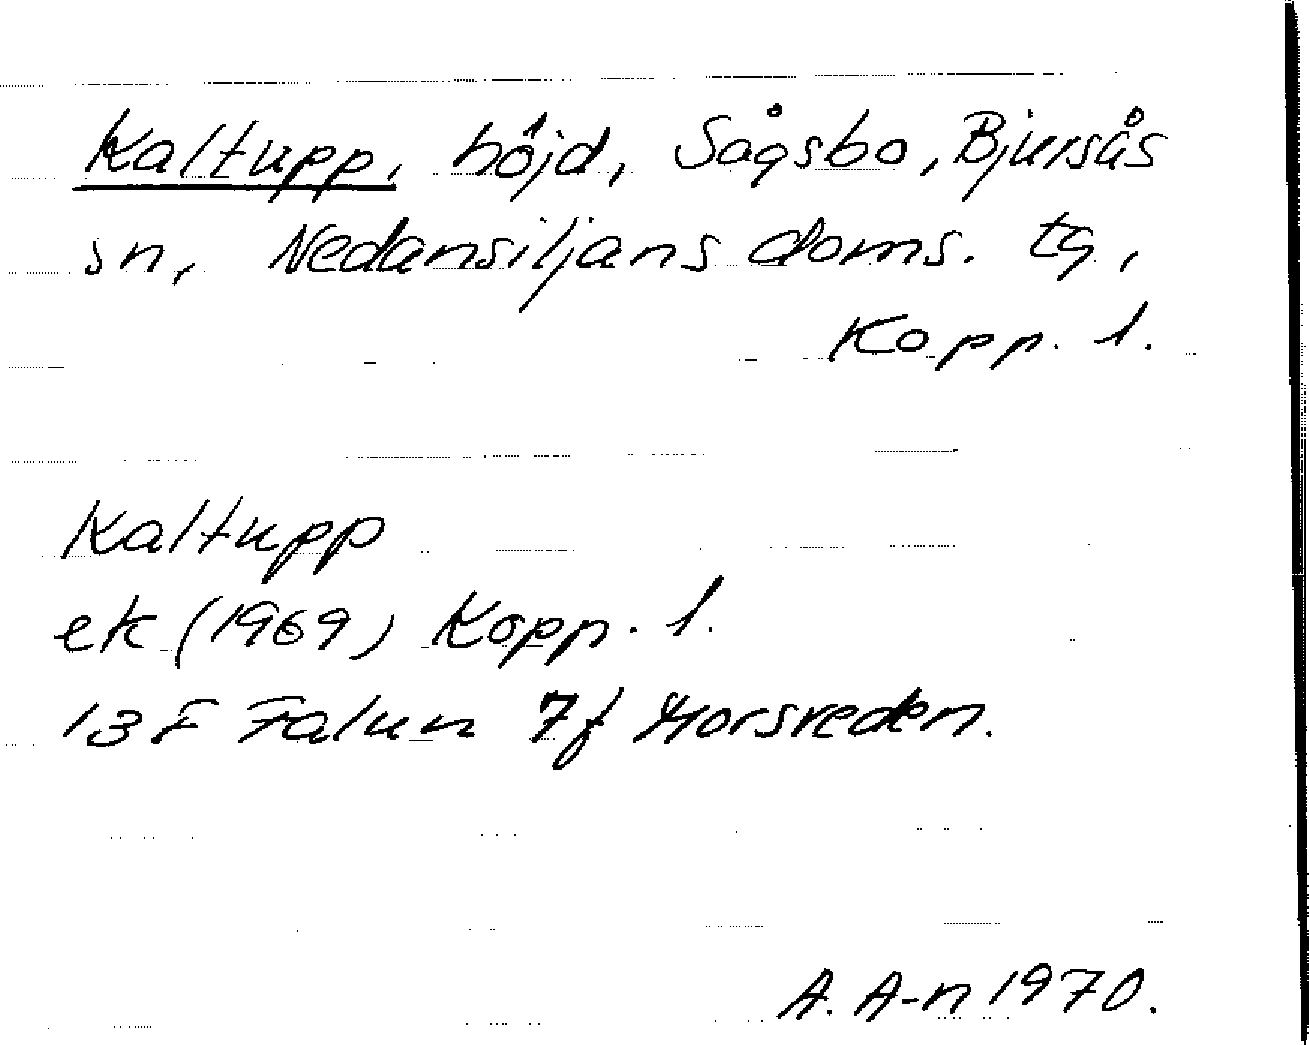 Kaltupp, höjd, Sågsbo, Bjursås
sn, Nedansiljans doms. tg,
Kopp. l.
Kaltupp
ek (1969) Kopp. l.
13 F Falun 7f Morsveden.
A. A-n 1970.